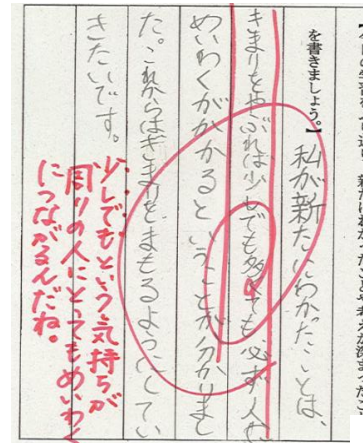 を書きましょう。】私が新たにわかったことは、
きまりをやぶれば少しでも多くても必ず人に
めいわくがかかるということが分かりまし
た。これからはきまりをまもるようにしてい
きたいです。
少しでもという気持ちが
周りの人にとってもめいわく
につながるんだね。